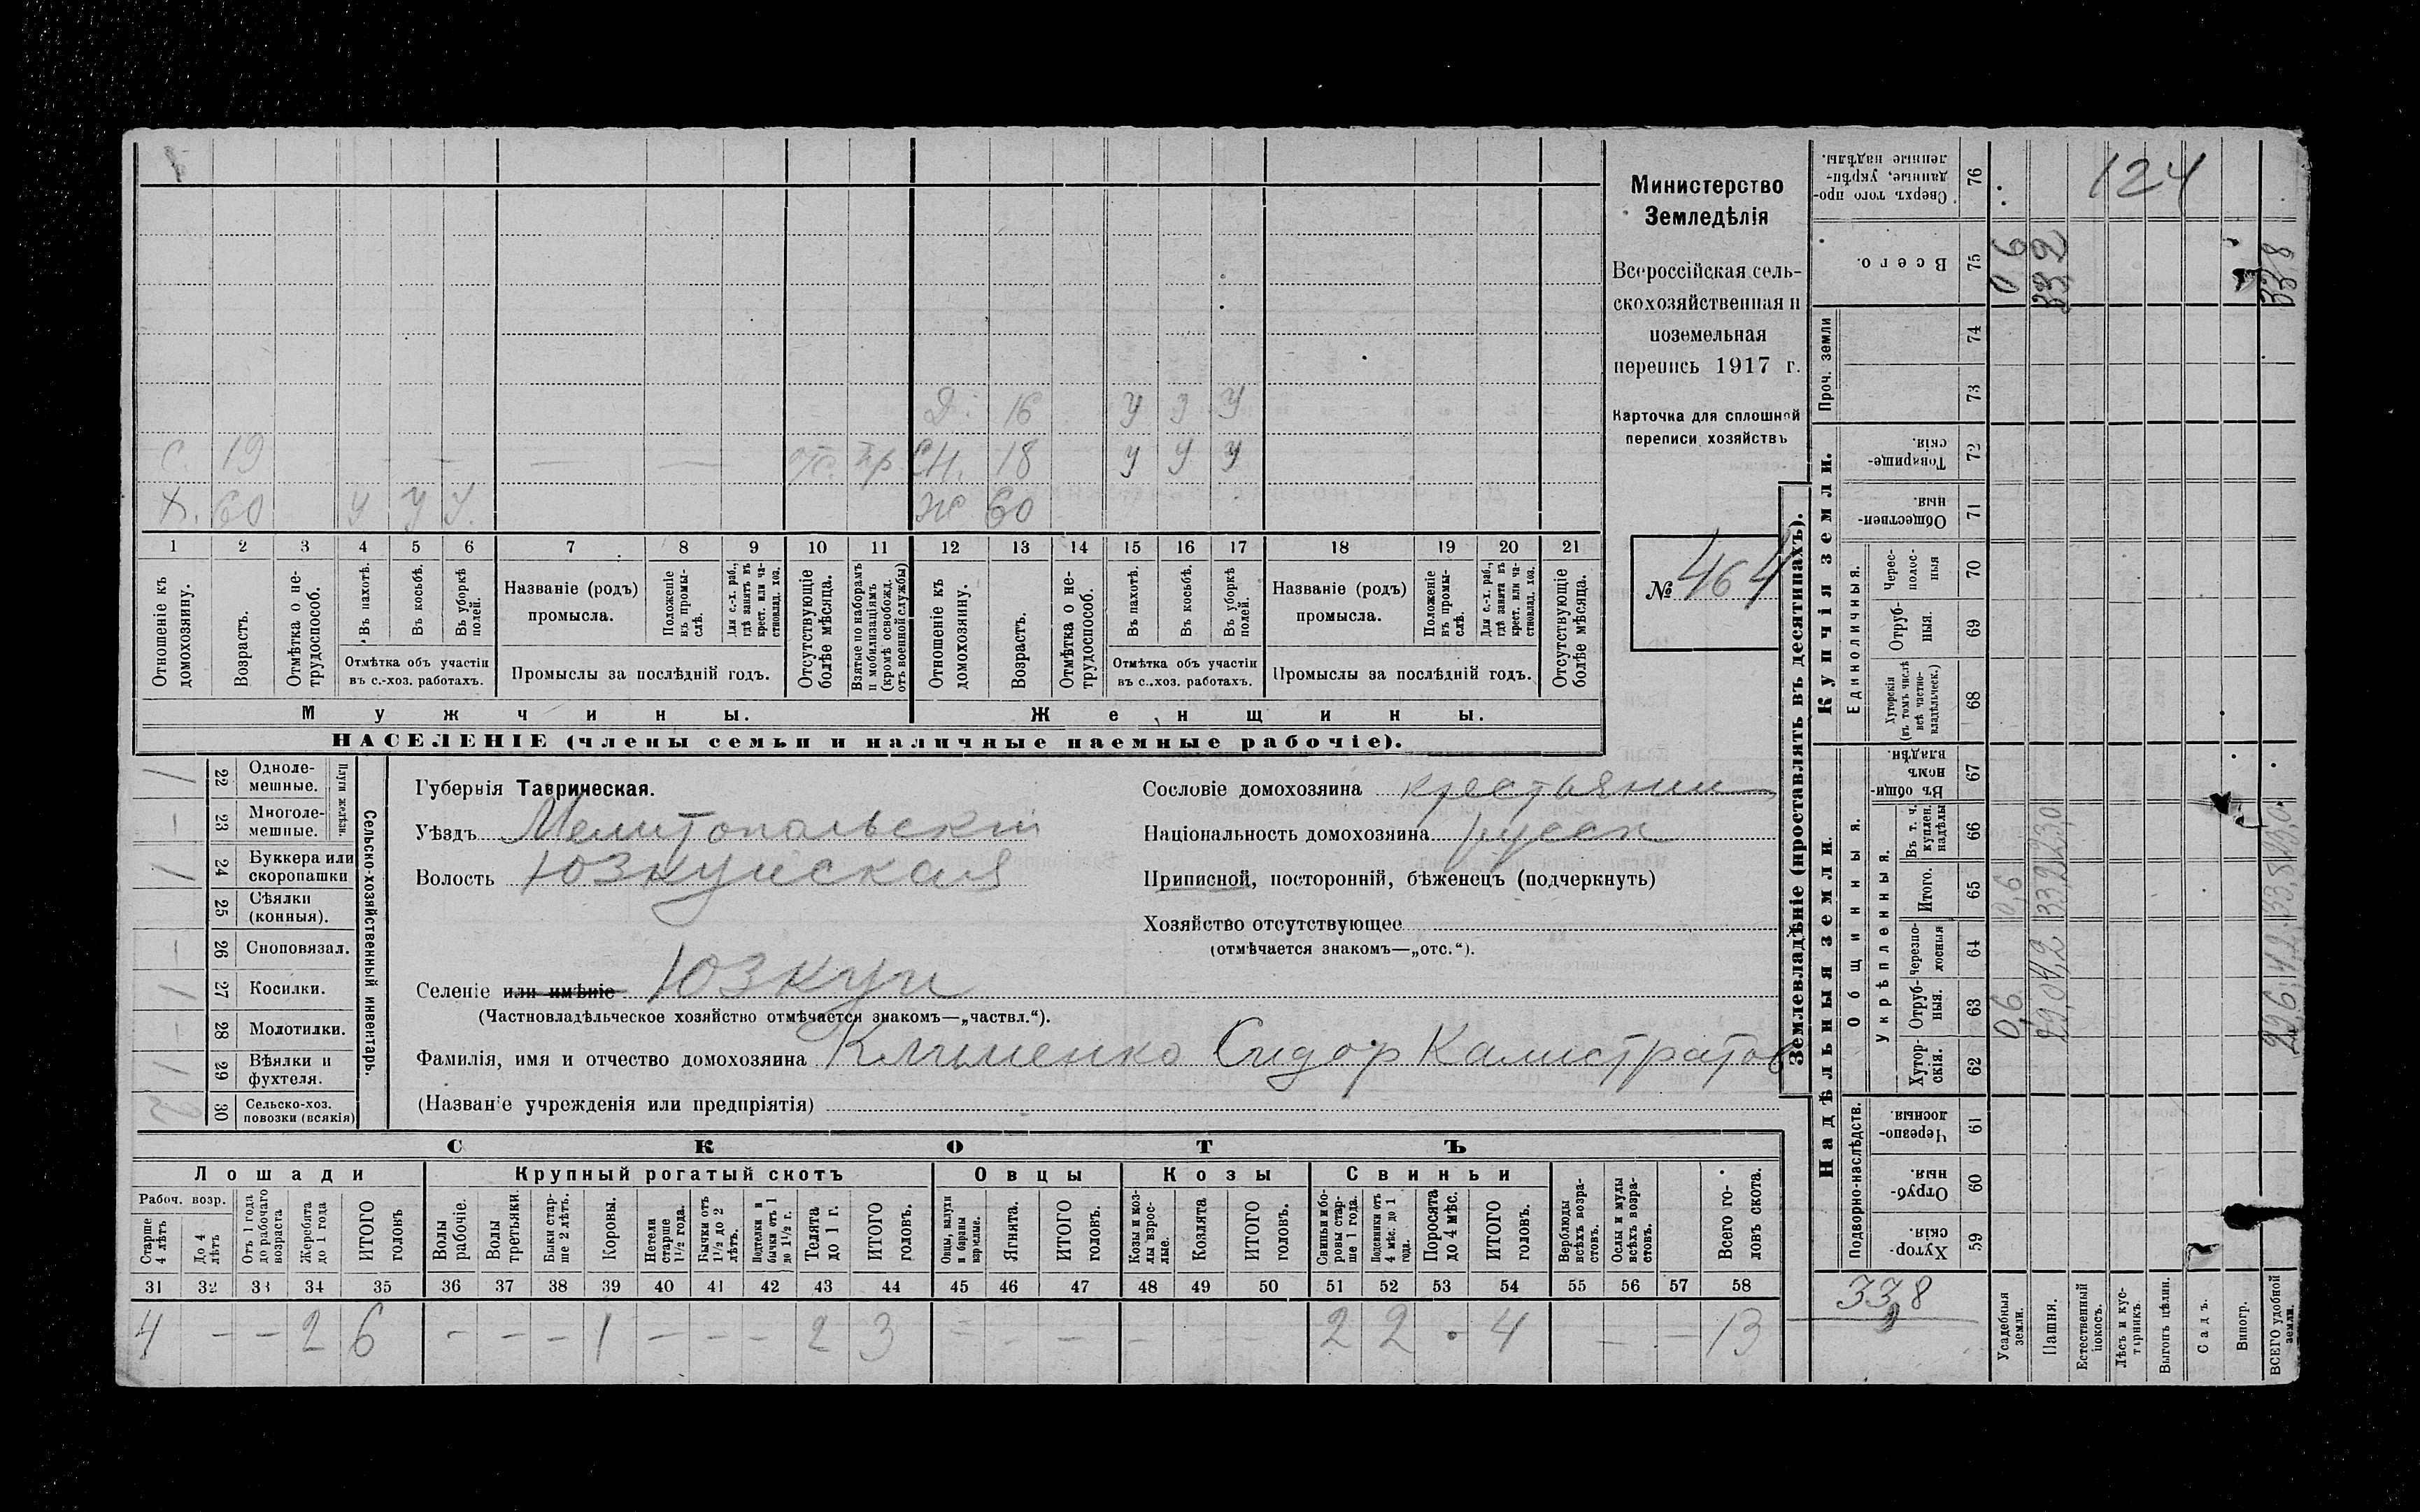 Министерство
Земледѣлія
Всероссійская сель-
скохозяйственная и
поземельная
перепись 1917 г.
Карточка для сплошной
переписи хозяйствъ
№ 464
Д. 16 У З У
С. 19 — — — — отс. пр. СН. 18 У У У
Х. 60 У У У. Ж 60
1 2 3 4 5 6 7 8 9 10 11 12 13 14 15 16 17 18 19 20 21
Отношеніе къ домохозяину.
Возрастъ.
Отмѣтка о не-трудоспособ.
Въ пахотѣ.
Въ косьбѣ.
Въ уборкѣ полей.
Отмѣтка объ участіи
въ с.-хоз. работахъ.
Названіе (родъ)
промысла.
Положеніе въ промы-слѣ.
Для с.-х. раб., гдѣ занятъ въ крест. или ча-стновлад. хоз.
Промыслы за послѣдній годъ.
Отсутствующіе болѣе мѣсяца.
Взятые по наборамъ и мобилизаціямъ (кромѣ освобожд. отъ военной службы)
Отношеніе къ домохозяину.
Возрастъ.
Отмѣтка о не-трудоспособ.
Въ пахотѣ.
Въ косьбѣ.
Въ уборкѣ полей.
Отмѣтка объ участіи
въ с.-хоз. работахъ.
Названіе (родъ)
промысла.
Положеніе въ промы-слѣ.
Для с.-х. раб., гдѣ занята въ крест. или ча-стновлад. хоз.
Промыслы за послѣдній годъ.
Отсутствующіе болѣе мѣсяца.
Мужчины. Женщины.
НАСЕЛЕНІЕ (члены семьи и наличные наемные рабочіе).
Сельско-хозяйственный инвентарь.
Плуги желѣзн.
1 22 Одноле-мешные.
— 23 Многоле-мешные.
1 24 Буккера или скоропашки
25 Сѣялки (конныя).
— 26 Сноповязал.
1 27 Косилки.
— 28 Молотилки.
1 29 Вѣялки и фухтеля.
2 30 Сельско-хоз. повозки (всякія)
Губернія Таврическая.
Уѣздъ Мелитопольскій
Волость Юзкуйская
Селеніе или имѣніе Юзкуи
(Частновладѣльческое хозяйство отмѣчается знакомъ—„частвл.“).
Фамилія, имя и отчество домохозяина Клименко Сидор Калистратов
(Названіе учрежденія или предпріятія)
Сословіе домохозяина крестьянин
Національность домохозяина русск
Приписной, посторонній, бѣженецъ (подчеркнуть)
Хозяйство отсутствующее
(отмѣчается знакомъ—„отс.“).
СКОТЪ
Лошади Крупный рогатый скотъ Овцы Козы Свиньи
Рабоч. возр.
Старше 4 лѣтъ
До 4 лѣтъ
Отъ 1 года до рабочаго возраста
Жеребята до 1 года
ИТОГО головъ
Волы рабочіе.
Волы третьяки.
Быки стар-ше 2 лѣтъ.
Коровы.
Нетели старше 1½ года.
Бычки отъ 1½ до 2 лѣтъ.
Подтелки и бычки отъ 1 до 1½ г.
Телята до 1 г.
ИТОГО головъ.
Овцы, валухи и бараны взрослые.
Ягнята.
ИТОГО головъ.
Козы и коз-лы взрос-лые.
Козлята
ИТОГО головъ.
Свиньи и бо-ровы стар-ше 1 года.
Подсвинки отъ 4 мѣс. до 1 года.
Поросята до 4 мѣс.
ИТОГО головъ.
Верблюды всѣхъ возра-стовъ.
Ослы и мулы всѣхъ возра-стовъ.
Всего го-ловъ скота.
31 32 33 34 35 36 37 38 39 40 41 42 43 44 45 46 47 48 49 50 51 52 53 54 55 56 57 58
4 — — 2 6 — — — 1 — — — 2 3 — — — — 2 2 • 4 — — 13
Землевладѣніе (проставлять въ десятинахъ).
Надѣльныя земли. Купчія земли. Проч. земли
Подворно-наслѣдств.
Общинныя.
Укрѣпленныя.
Единоличныя.
Хутор-скія. 59
Отруб-ныя. 60
Черезпо-лосныя 61
Хутор-скія. 62
Отруб-ныя. 63
Черезпо-лосныя 64
Итого. 65
Въ т. ч. куплен. надѣлы 66
Въ общи-номъ владѣн. 67
Хуторскія (въ томъ числѣ всѣ частно-владѣльческ.) 68
Отруб-ныя. 69
Черес-полос-ныя 70
Обществен-ныя 71
Товарище-скія. 72
73
74
Всего. 75
Сверхъ того про-данные, укрѣп-ленные надѣлы. 76
124
33,8
Усадебныя земли. 0,6 0,6 0,6
Пашня. 29,0 4,2 33,2 23,0 33,2
Естественный покосъ.
Лѣсъ и кус-тарникъ.
Выгонъ цѣлин.
Садъ.
Виногр.
ВСЕГО удобной земли. 29,6 4,2 33,8 33,8